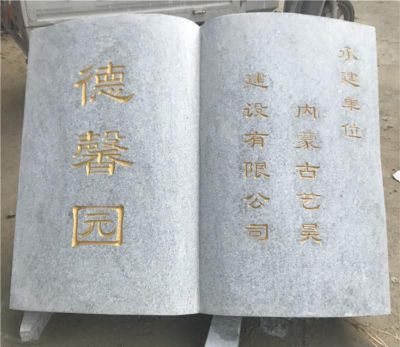 承建单位
内蒙古艺昊
建设有限公司
德馨园